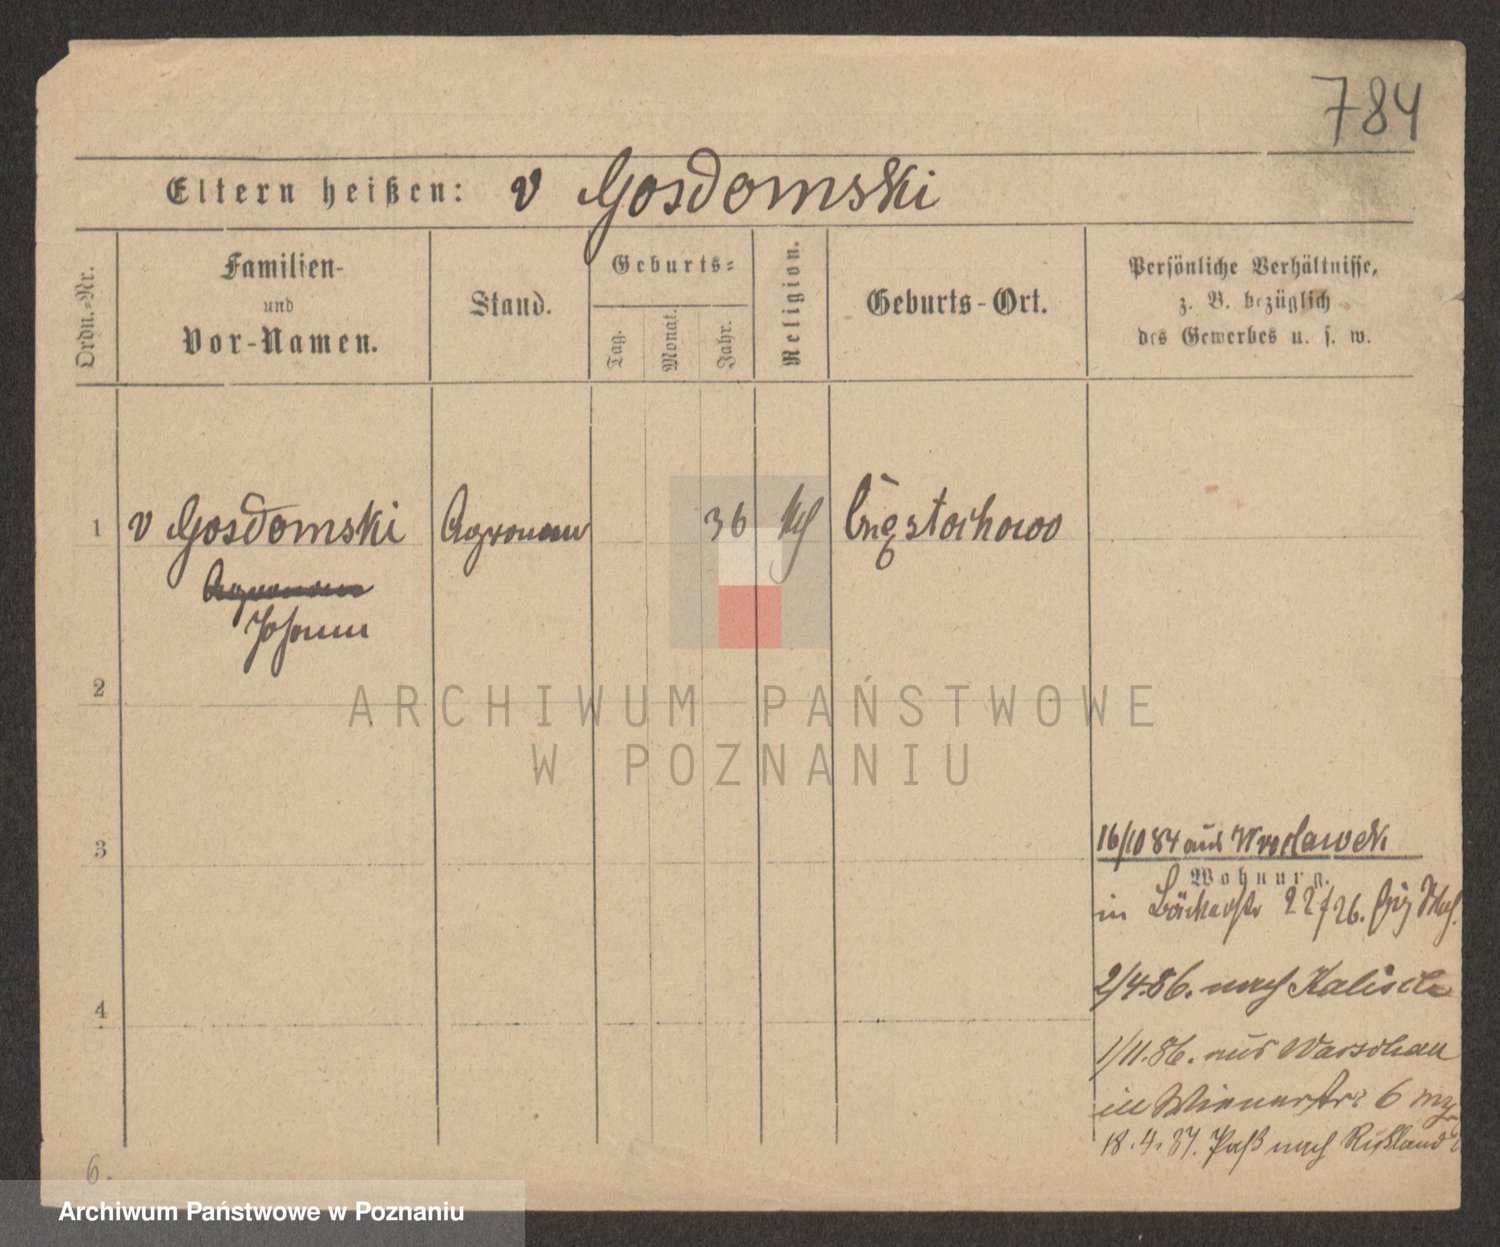 784
Eltern heißen: v Gosdomski
Ordn.-Nr.
Familien-
und
Vor-Namen.
Stand.
Geburts-
Tag.
Monat.
Jahr.
Religion.
Geburts-Ort.
Persönliche Verhältnisse,
z. B. bezüglich
des Gewerbes u. s. w.
1 v Gosdomski Agronom 36 Częstochowo
Johann
2
ARCHIWUM PAŃSTWOWE
W POZNANIU
16/10 84 aus Wroclawek
3
Wohnung.
in Bäckerstr 22/26.
2/4.86. nach Kalisch
4
1/11.86. aus Warschau
in Wienerstr. 6
18.4.87. Paß nach Rußland
6.
Archiwum Państwowe w Poznaniu